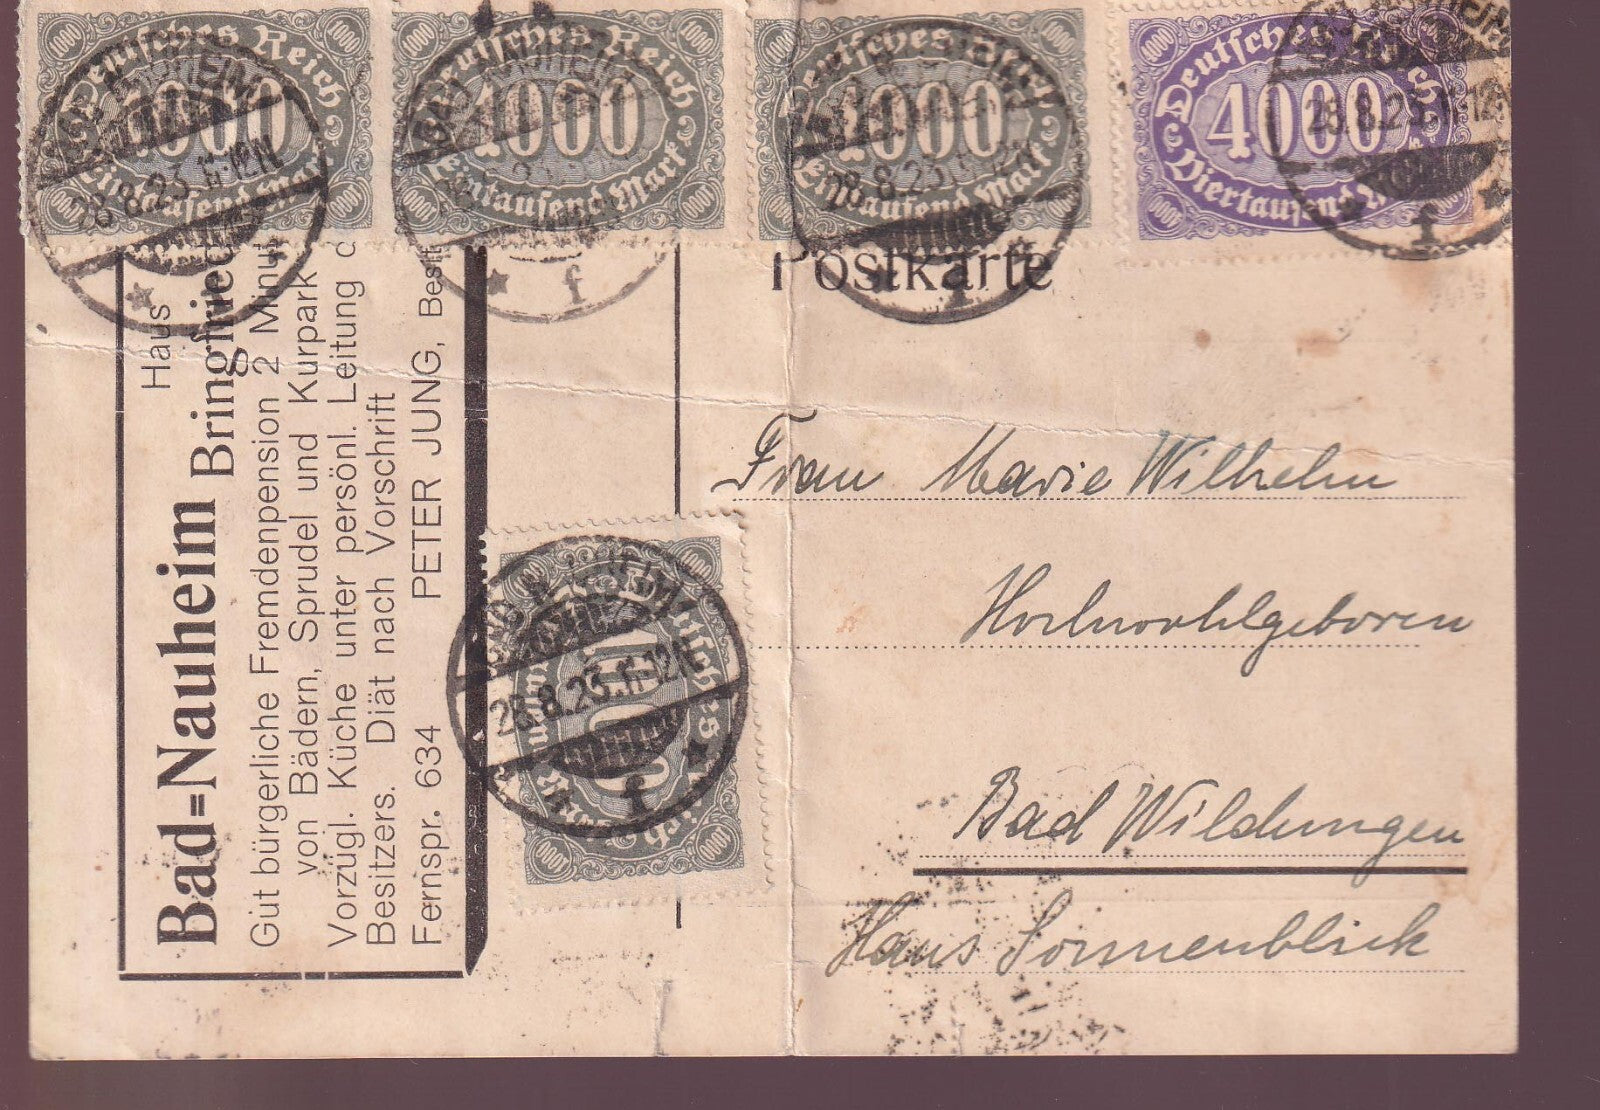 Deutsches Reich
1000
Eintausend Mark
Deutsches Reich
1000
Eintausend Mark
Deutsches Reich
1000
Eintausend Mark
Deutsches Reich
4000
Viertausend
BAD NAUHEIM
28.8.23.11-12N
f
BAD NAUHEIM
f
28.8.23.11-12N
28.8.23.11-12N
f
Postkarte
Haus
Bad=Nauheim Bringfried
Gut bürgerliche Fremdenpension 2 Minut
von Bädern, Sprudel und Kurpark
Vorzügl. Küche unter persönl. Leitung d
Besitzers. Diät nach Vorschrift
Fernspr. 634 PETER JUNG, Besit
1000
28.8.23.11-12N
f
Frau Marie Wilhelm
Hochwohlgeboren
Bad Wildungen
Haus Sonnenblick